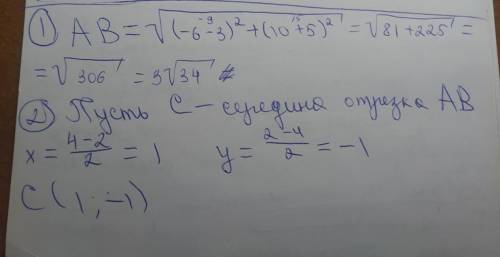 ① AB = √((-6-3)² + (10+5)²) = √(81+225) =
-9 15
= √306 = 3√34 #
② Пусть С – середина отрезка AB
x = (4-2)/2 = 1 y = (2-4)/2 = -1
C (1; -1)